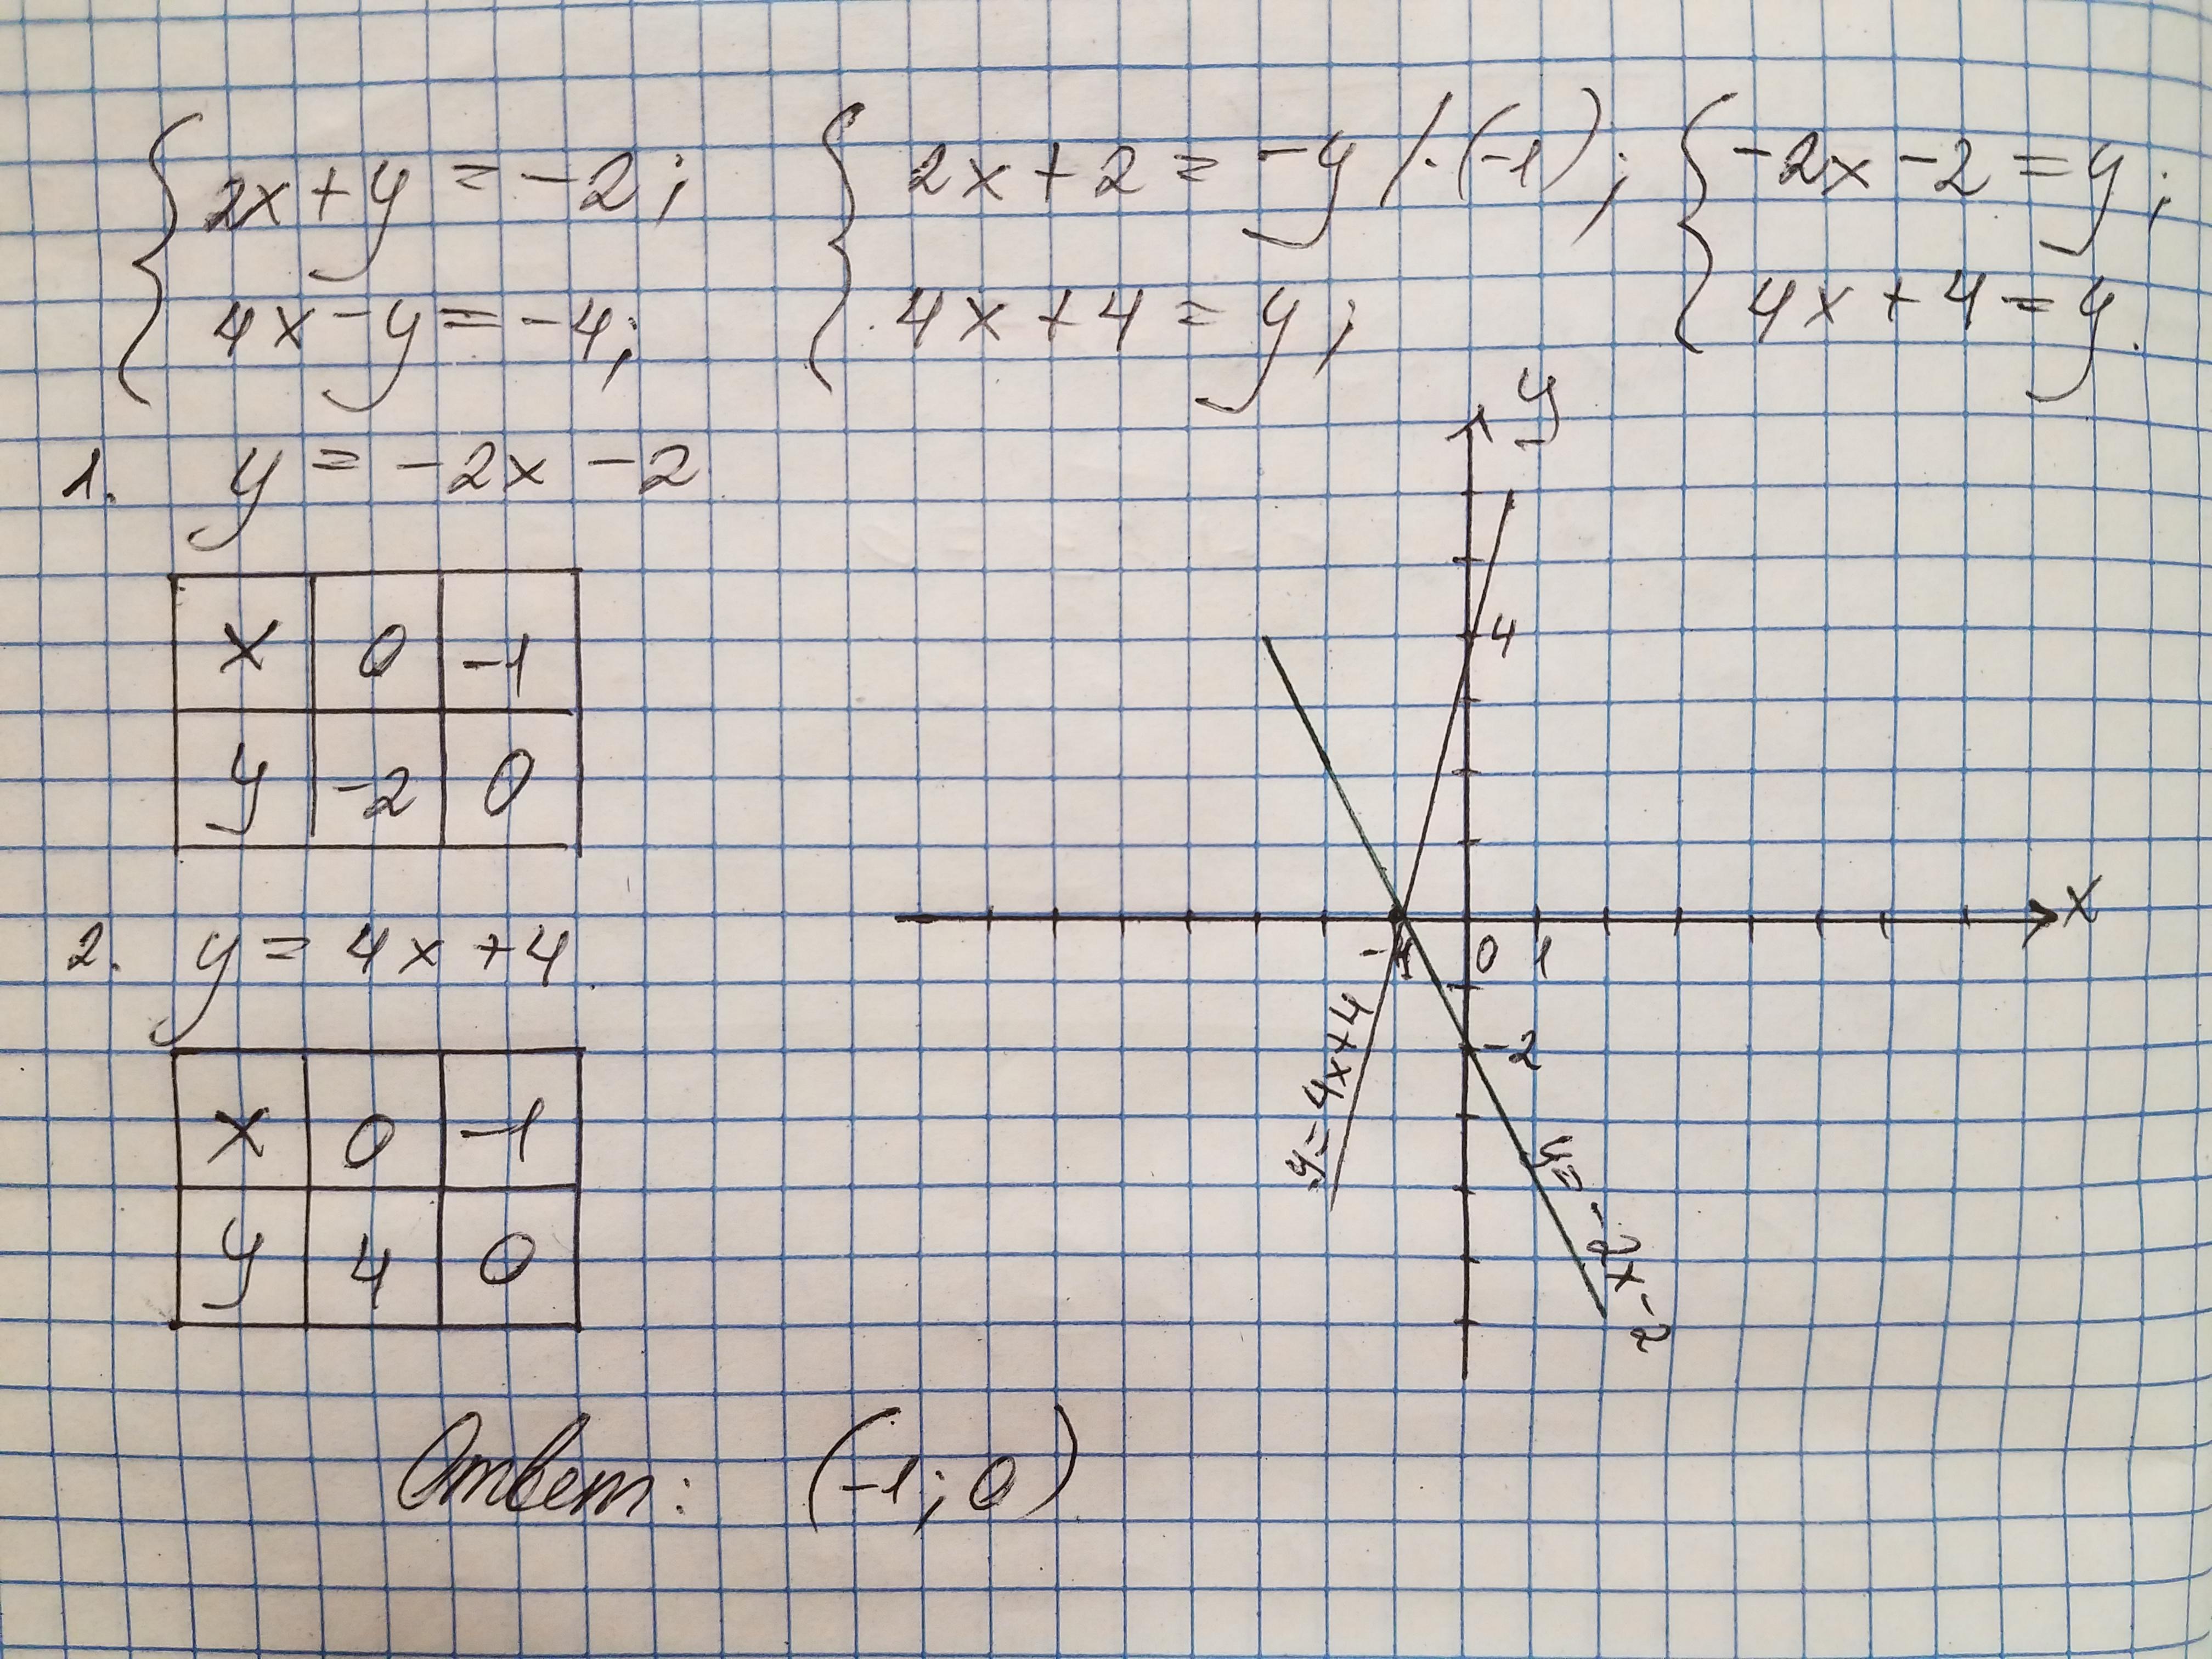 { 2x+y=-2; { 2x+2=-y /·(-1); { -2x-2=y;
4x-y=-4; 4x+4=y; 4x+4=y.
1. y=-2x-2
x 0 -1
y -2 0
2. y=4x+4.
x 0 -1
y 4 0
y
4
x
-1 0 1
-2
y=4x+4
y=-2x-2
Ответ: (-1;0).